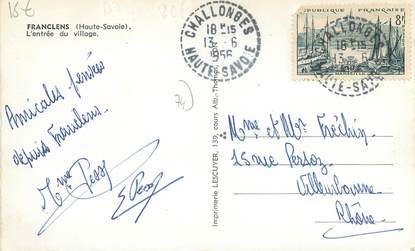 15€
74
FRANCLENS (Haute-Savoie).
L'entrée du village.
CHALLONGES
18H15
13-6
1956
HAUTE-SAVOIE
POSTES
FRANÇAISE
8F
CHALLONGES
18H15
13-6
HAUTE-SAVOIE
Amicales pensées
depuis Franclens.
Mme
Imprimerie LESCUYER, 139, cours Alb.-Thomas,
Mme et Mr Fréchin
15 rue Persoz
Villeurbanne
Rhône